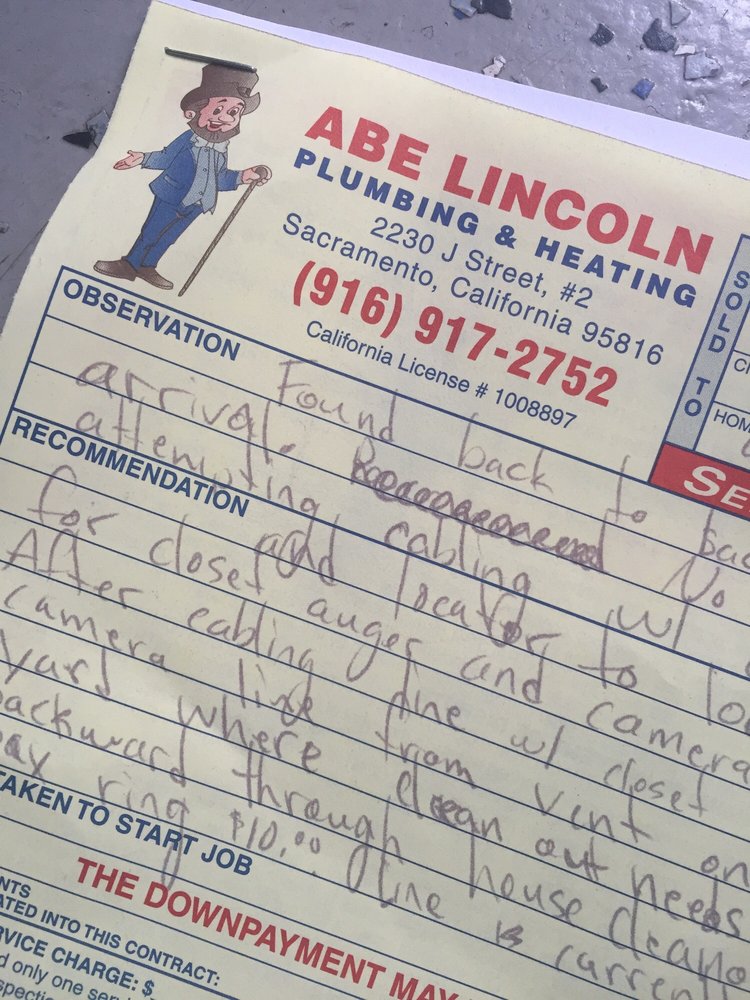 ABE LINCOLN
PLUMBING & HEATING
2230 J Street, #2
Sacramento, California 95816
(916) 917-2752
California License # 1008897
SOLD TO
HOM
SE
OBSERVATION
Found back to bac
arrival. No
RECOMMENDATION
attempting cabling w/
for closet and locator to lo
After cabling auger and camera
camera line line w/ closet
yard where from vent on
backward through clean out needs
wax ring $10.00 house cleano
Line is current
TAKEN TO START JOB
THE DOWNPAYMENT MAY
NTS
ATED INTO THIS CONTRACT:
RVICE CHARGE: $
d only one serv